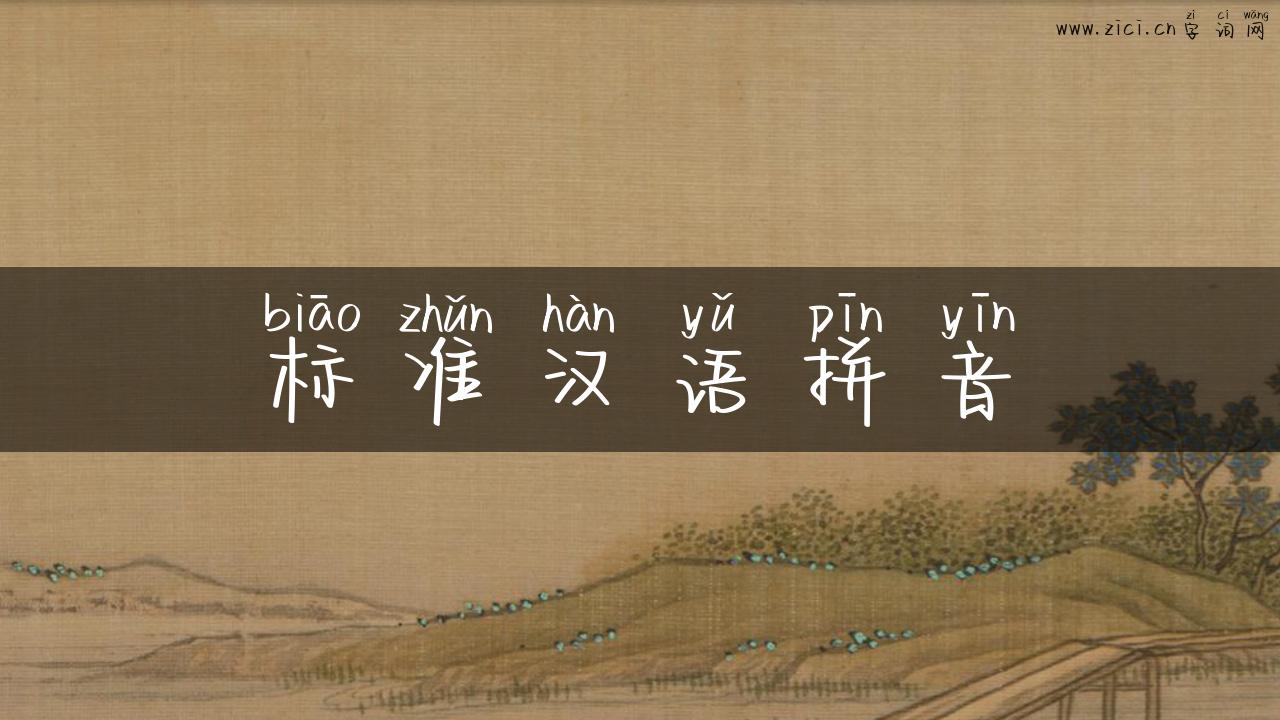 zì cí wǎng
www.zici.cn字词网
biāo zhǔn hàn yǔ pīn yīn
标准汉语拼音